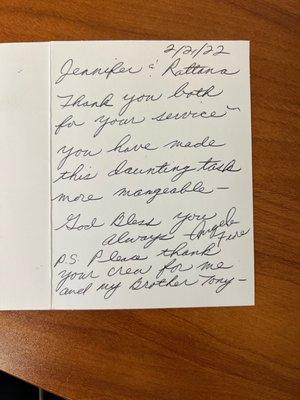 2/21/22
Jennifer & Rattana
Thank you both
for your service~
you have made
this daunting task
more mangeable -
God Bless you
always Angela
P.S. Please thank
your crew for me
and my Brother Tony -